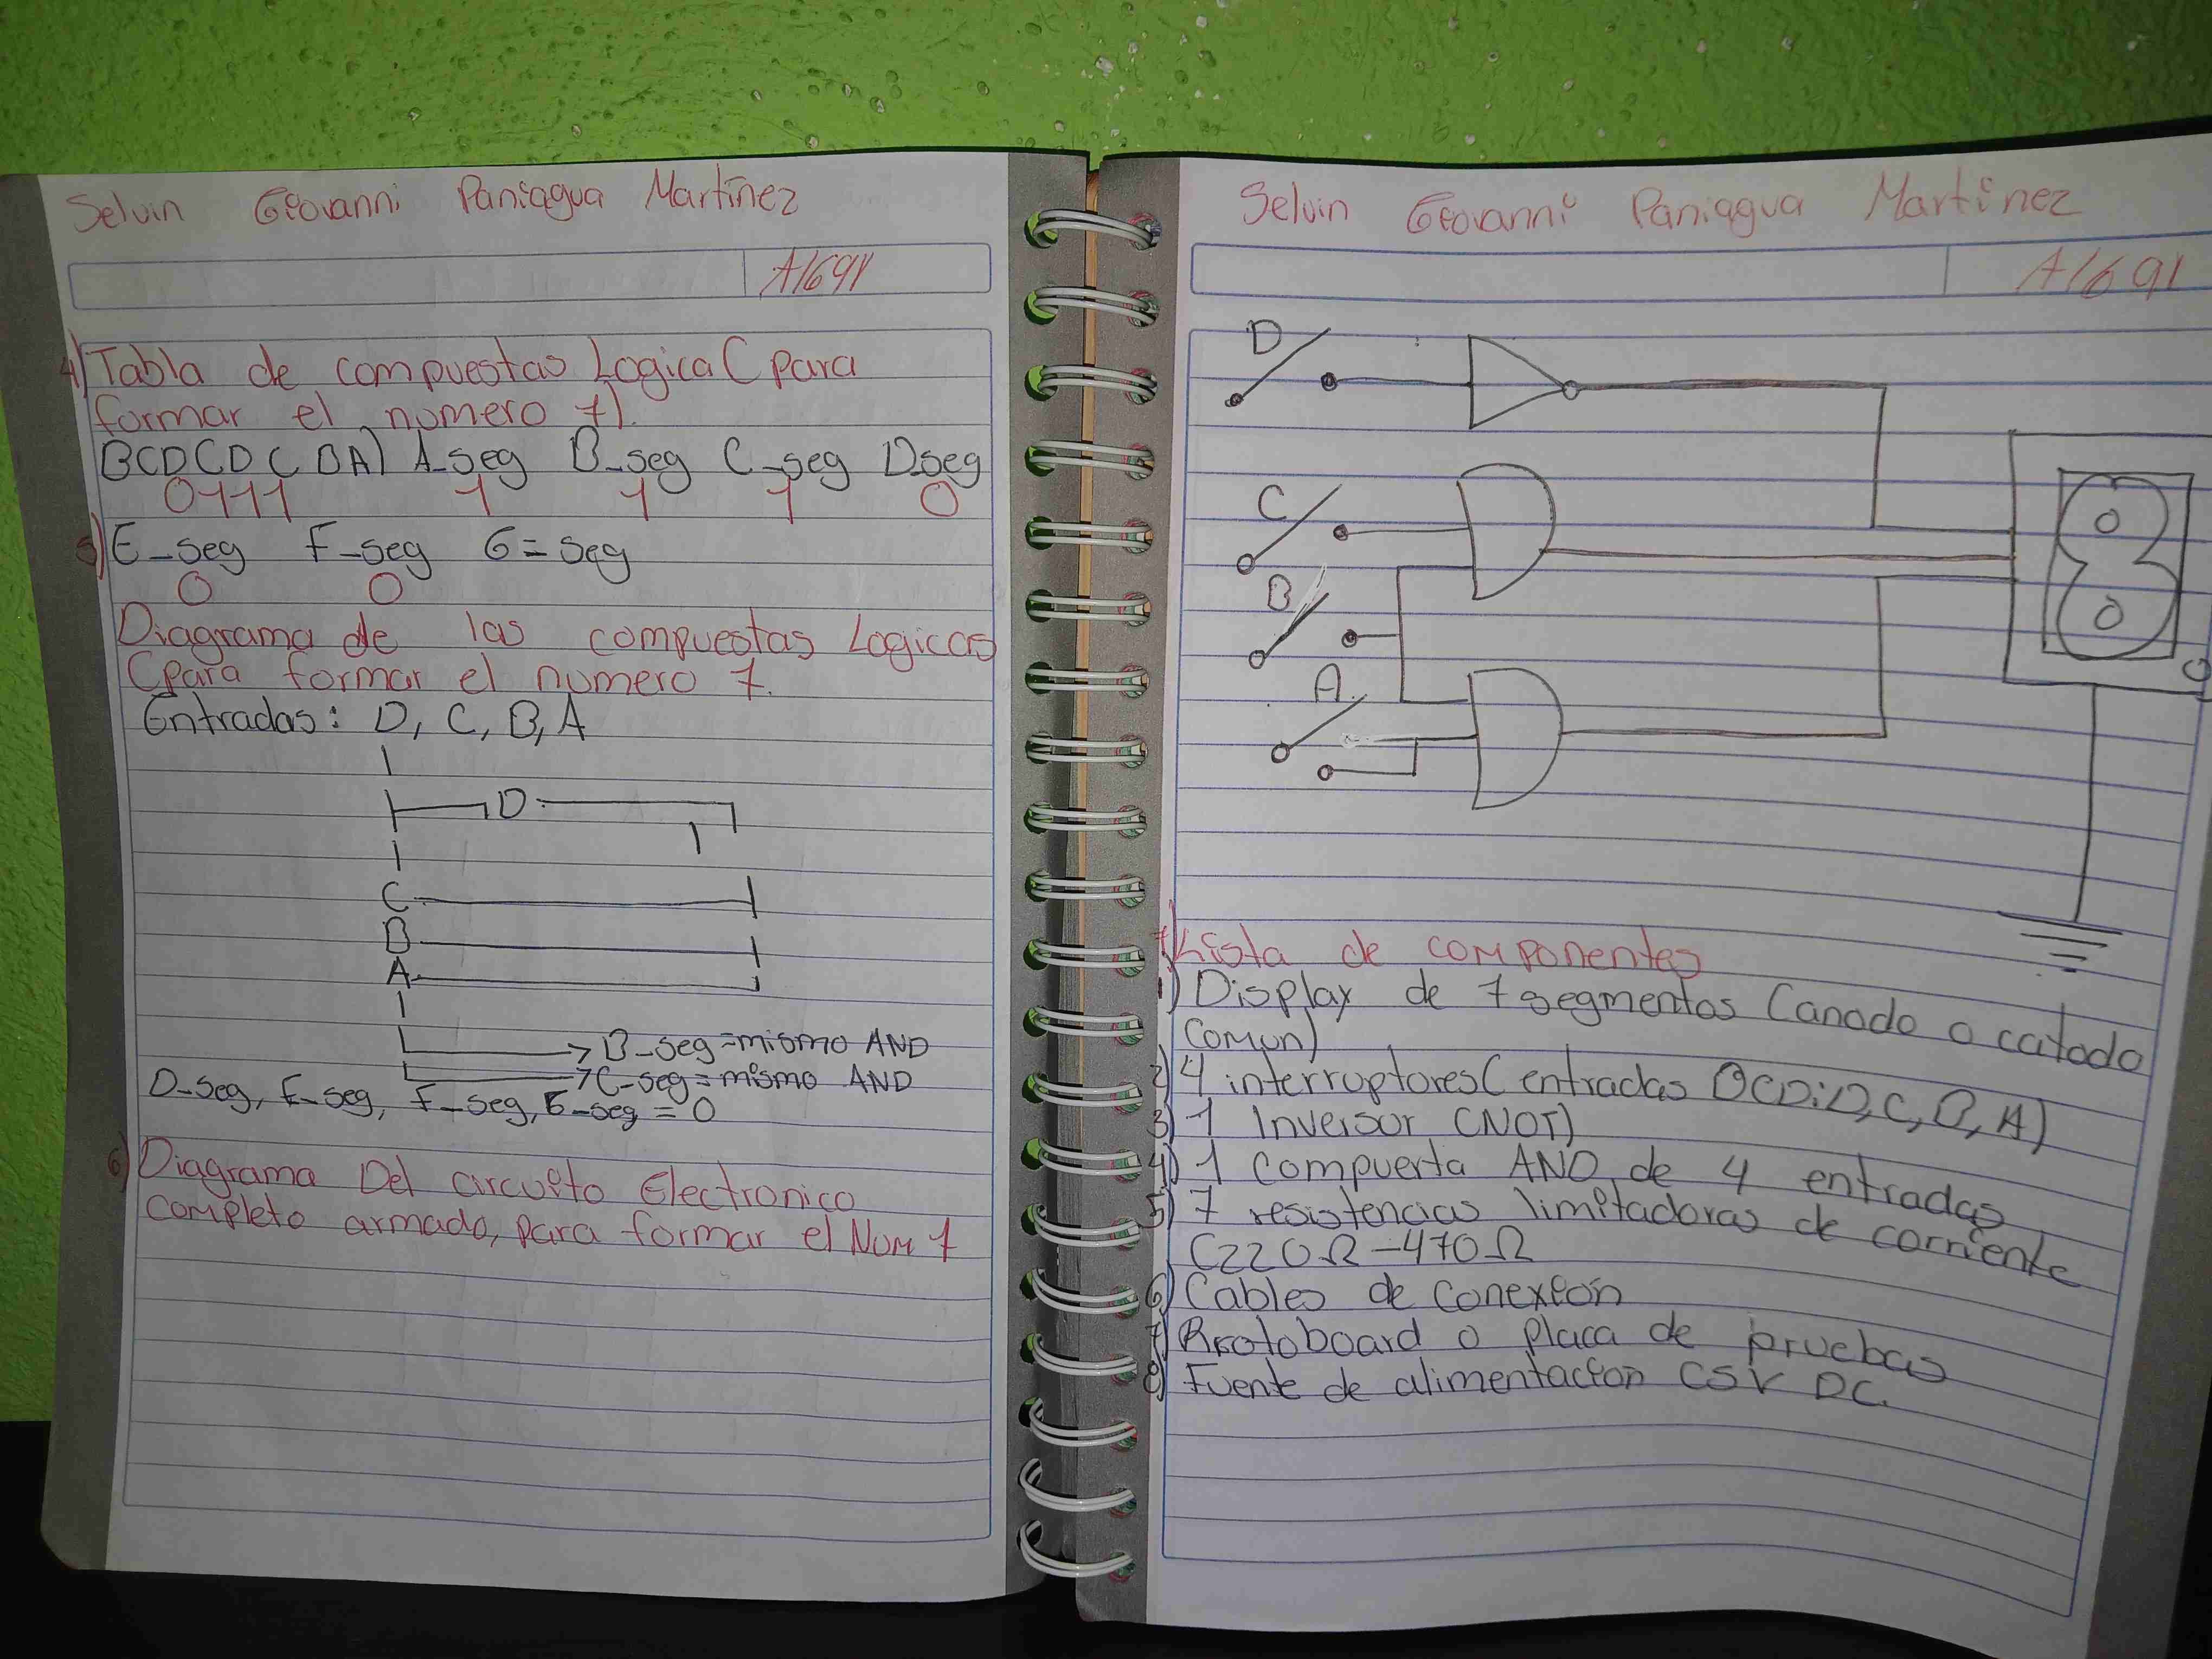 Selvin Geovanni Paniagua Martínez
A1691
4) Tabla de compuestas Logica (para
formar el numero 7).
BCD CD C BA) A_seg B_seg C_seg D_seg
0111 1 1 1 0
5) E_seg F_seg G=seg
0 0
Diagrama de las compuestas Logicas
(para formar el numero 7.
Entradas: D, C, B, A
D
C
B
A
B_seg=mismo AND
C_seg=mismo AND
D_seg, E_seg, F_seg, G_seg = 0
6) Diagrama Del circuito Electronico
completo armado, para formar el Num 7
Selvin Geovanni Paniagua Martinez
A1691
D
C
B
A
7) Lista de componentes
1) Display de 7 segmentos (anodo o catodo
comun)
2) 4 interruptores (entradas BCD: D, C, B, A)
3) 1 Inversor (NOT)
4) 1 Compuerta AND de 4 entradas
5) 7 resistencias limitadoras de corriente
(220Ω-470Ω
6) Cables de conexión
7) Protoboard o placa de pruebas
8) Fuente de alimentacion (5V DC.